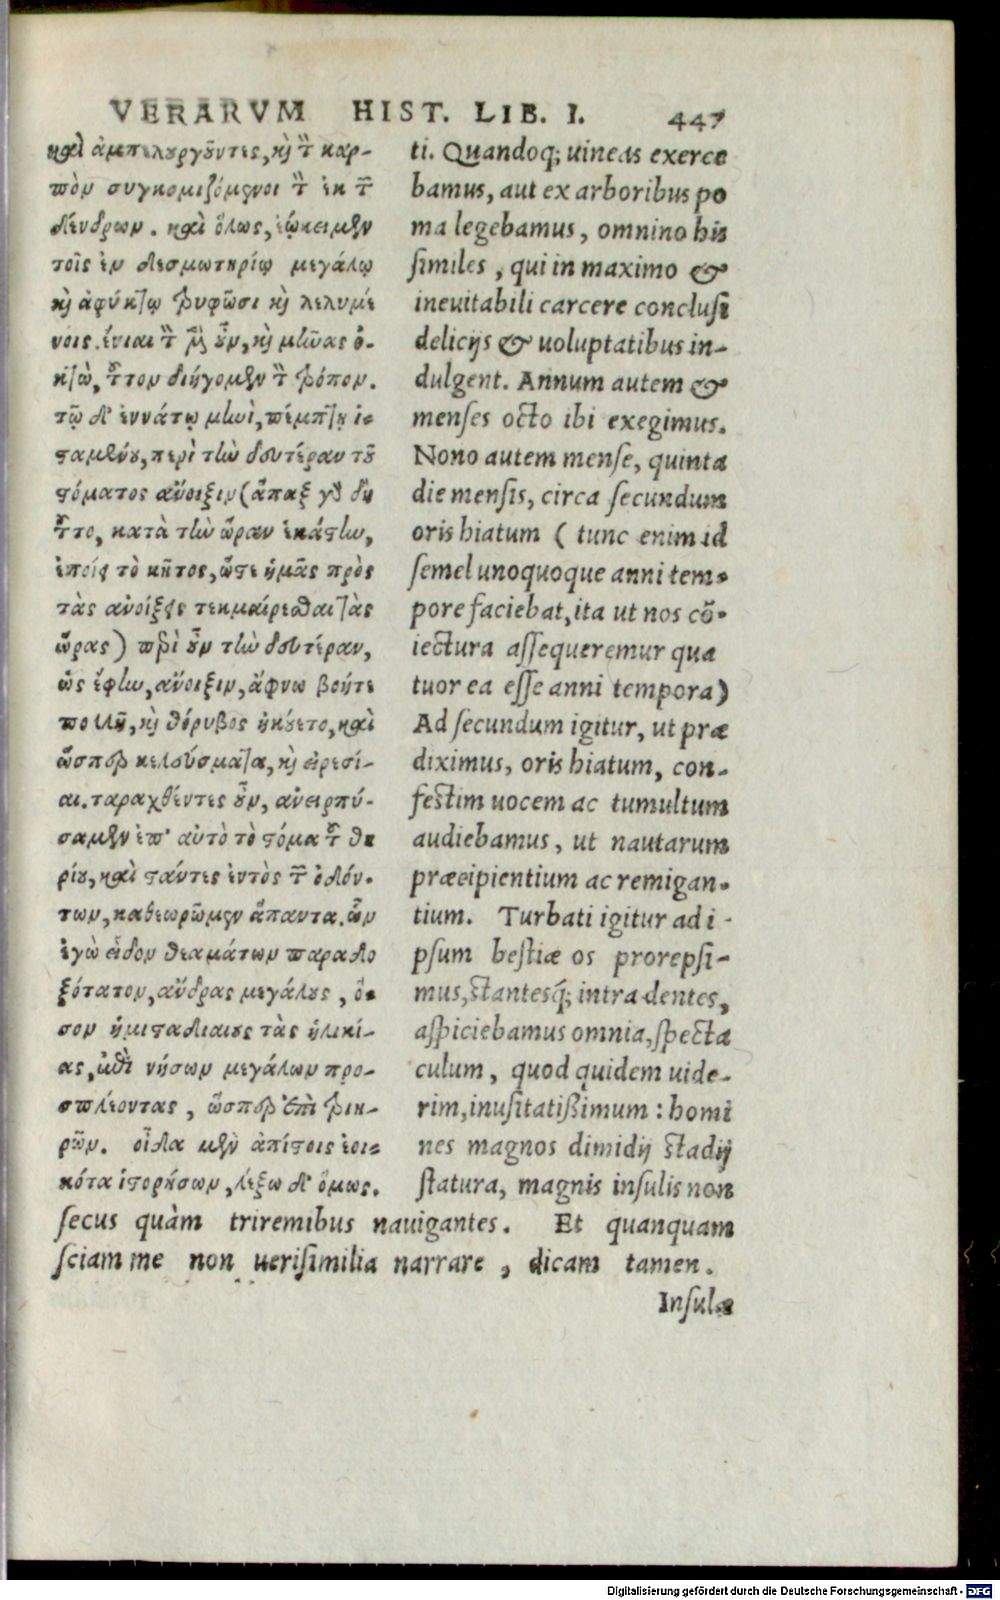 VERARVM HIST. LIB. I. 447
καὶ ἀμπελουργοῦντες, καὶ τὸν καρ-
πὸν συγκομιζόμενοι τὸν ἐκ τῶν
δένδρων. καὶ ὅλως, ἐῴκειμεν
τοῖς ἐν δεσμωτηρίῳ μεγάλῳ
καὶ ἀφύκτῳ τρυφῶσι καὶ λελυμέ
νοις. ἐνιαυτὸν μὲν οὖν, καὶ μῆνας ὀ-
κτὼ, τοῦτον διήγομεν τὸν τρόπον.
τῷ δ' ἐννάτῳ μηνὶ, πέμπτῃ ἱ-
σταμένου, περὶ τὴν δευτέραν τοῦ
στόματος ἄνοιξιν (ἅπαξ γὰρ δὴ
τοῦτο, κατὰ τὴν ὥραν ἑκάστην,
ἐποίει τὸ κῆτος, ὥστε ἡμᾶς πρὸς
τὰς ἀνοίξεις τεκμαίρεσθαι τὰς
ὥρας) περὶ οὖν τὴν δευτέραν,
ὡς ἔφην, ἄνοιξιν, ἄφνω βοή τε
πολλὴ, καὶ θόρυβος ἠκούετο, καὶ
ὥσπερ κελεύσματα, καὶ εἰρεσί-
αι. ταραχθέντες οὖν, ἀνειρπύ-
σαμεν ἐπ' αὐτὸ τὸ στόμα τοῦ θη
ρίου, καὶ στάντες ἐντὸς τῶν ὀδόν-
των, καθεωρῶμεν ἅπαντα. ὧν
ἐγὼ εἶδον θεαμάτων παραδο
ξότατον, ἄνδρας μεγάλους, ὅ-
σον ἡμισταδιαίους τὰς ἡλικί-
ας, ἐπὶ νήσων μεγάλων προ-
σπλέοντας, ὥσπερ ἐπὶ τριη-
ρῶν. οἶδα μὲν ἀπίστοις ἐοι-
κότα ἱστορήσων, λέξω δ' ὅμως.
ti. Quandoq; uineas exerce
bamus, aut ex arboribus po
ma legebamus, omnino his
similes, qui in maximo &
ineuitabili carcere conclusi
delicijs & uoluptatibus in-
dulgent. Annum autem &
menses octo ibi exegimus.
Nono autem mense, quinta
die mensis, circa secundum
oris hiatum ( tunc enim id
semel unoquoque anni tem-
pore faciebat, ita ut nos cō-
iectura assequeremur qua
tuor ea esse anni tempora)
Ad secundum igitur, ut præ
diximus, oris hiatum, con-
festim uocem ac tumultum
audiebamus, ut nautarum
præcipientium ac remigan-
tium. Turbati igitur ad i-
psum bestiæ os prorepsi-
mus, stantesq́; intra dentes,
aspiciebamus omnia, specta
culum, quod quidem uide-
rim, inusitatißimum : homi
nes magnos dimidij stadij
statura, magnis insulis non
secus quàm triremibus nauigantes. Et quanquam
sciam me non uerisimilia narrare, dicam tamen.
Insulæ
Digitalisierung gefördert durch die Deutsche Forschungsgemeinschaft - DFG